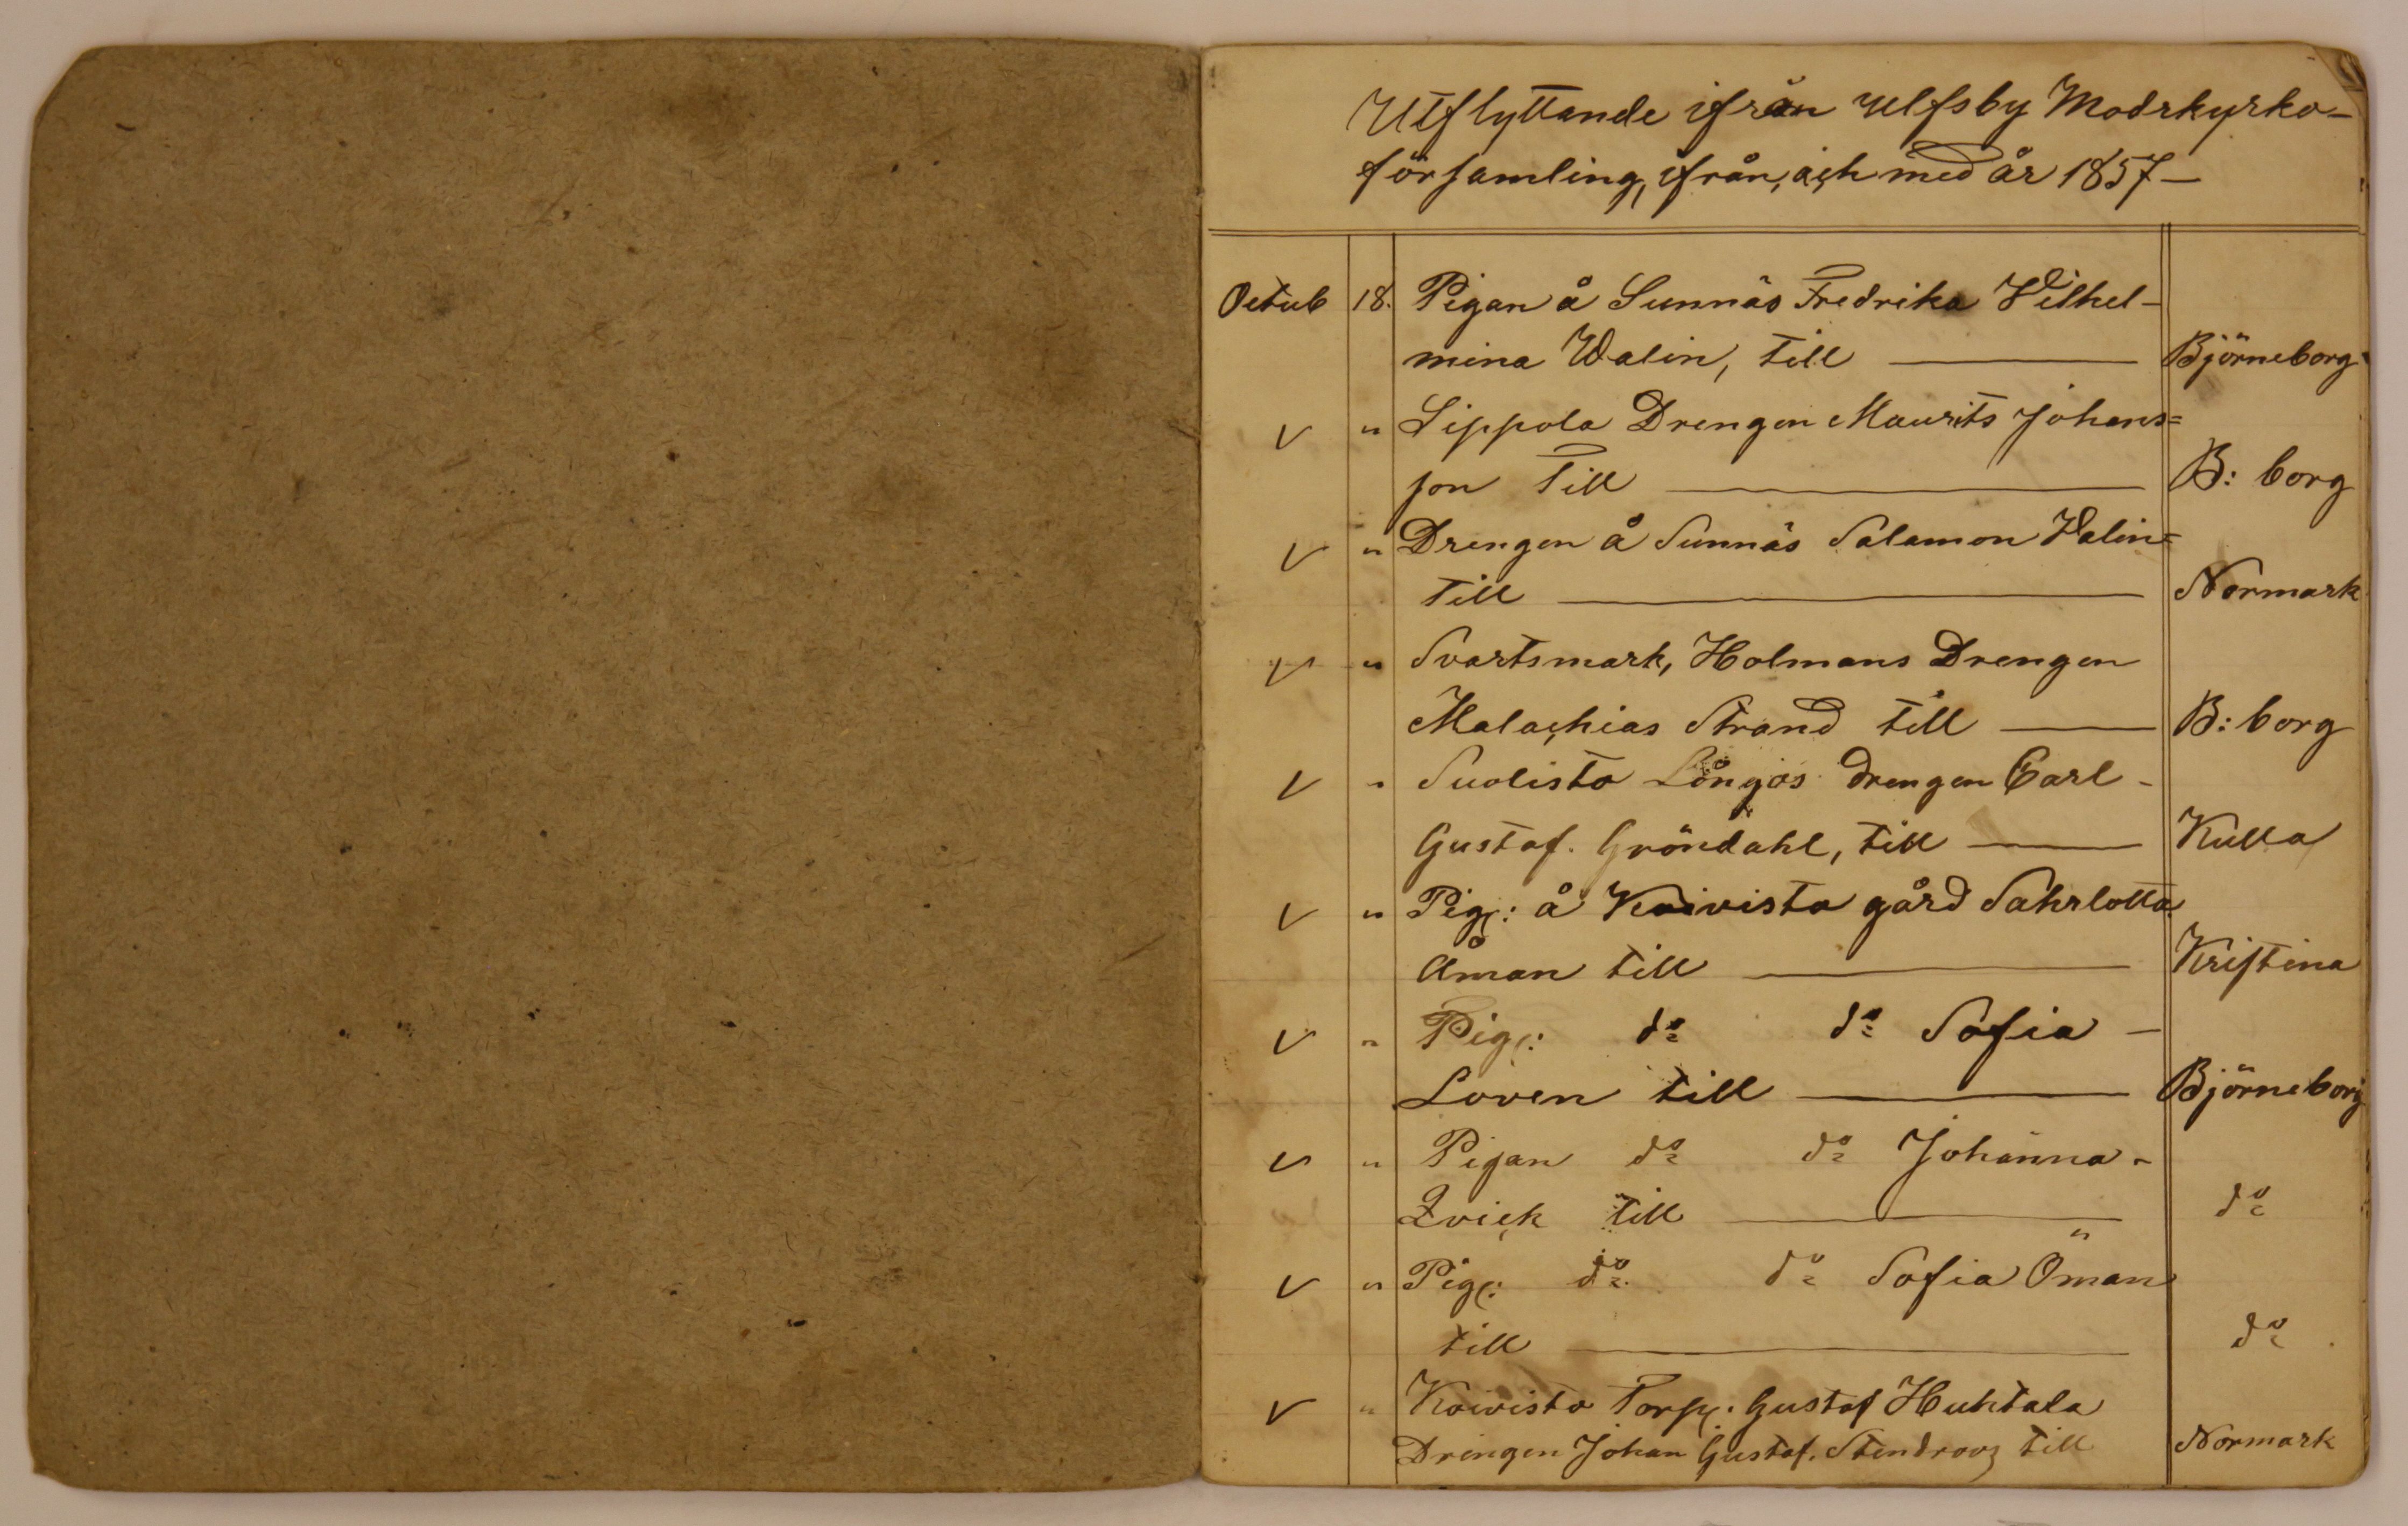 Utflyttande ifrån Ulfsby Moderkyrko-
församling, ifrån, och med år 1857 —
Octub 18. Pigan å Sunnäs Fredrika Vilhel-
mina Walin, till — Björneborg
V " Lippola Drengen Maurits Johans=
son Till — B: borg
V " Drengen å Sunnäs Salamon Walin=
till — Normark
V " Svartsmark, Holmans Drengen
Malachias Strand till — B: borg
V " Suolisto Långös drengen Carl -
Gustaf. Gröndahl, till — Kulla
V " Pig: å Koivisto gård Sahrlotta
Åman till — Kristina
V " Pig: do do Sofia —
Loven till — Björneborg
V " Pigan do do Johanna -
Qvick till — do
V " Pig: do do Sofia Öman
till — do
V " Koivisto Torp: Gustaf Huhtala
Drengen Johan Gustaf. till Normark